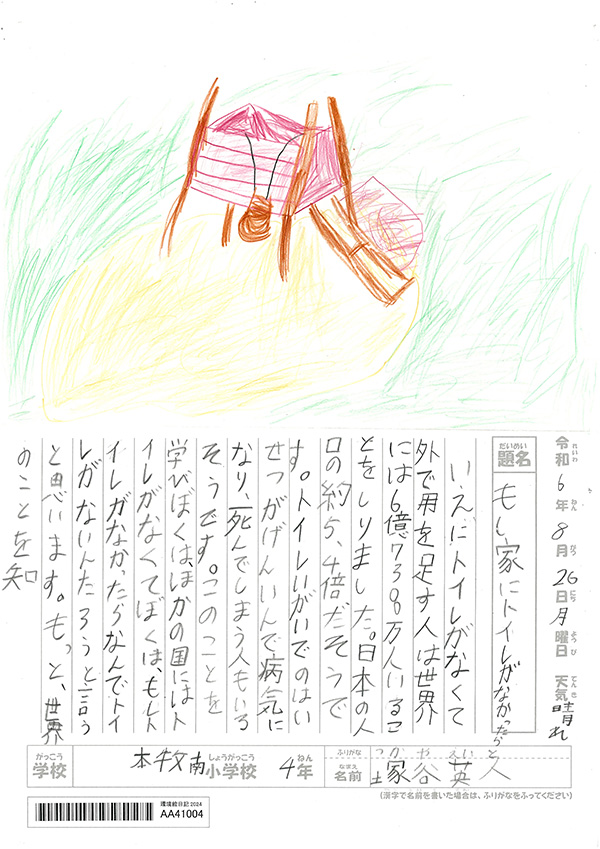 令和6年8月26日月曜日 天気晴れ
れいわ ねん がつ にち ようび てんき
だいめい
題名
もし家にトイレがなかったら
いえにトイレがなくて
外で用を足す人は世界
には6億7300万人いるこ
とをしりました。日本の人
口の約5、4倍だそうで
す。トイレいがいでのはい
せつがげんいんで病気に
なり、死んでしまう人もいる
そうです。このことを
学びぼくは、ほかの国にはト
イレがなくてぼくは、もしト
イレがなかったらなんでトイ
レがないんだろうと言う
と思います。もっと、世界
のことを知
がっこう
学校
本牧南小学校
しょうがっこう
4年
ねん
ふりがな
なまえ
名前
つか や えい と
塚谷英人
(漢字で名前を書いた場合は、ふりがなをふってください)
環境絵日記2024
AA41004